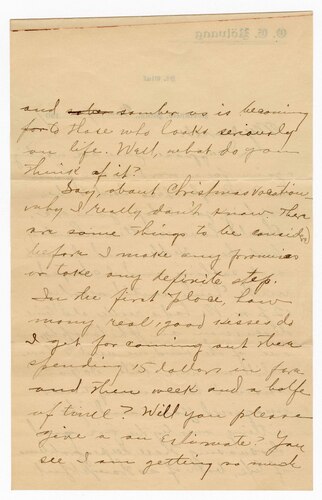 and sober somber as is becoming
for to those who looks seriously
on life. Well, what do you
think of it?
Say, about Christmas vacation,
why I really don't know. There
are some things to be consider
before I make any promises
or take any definite step.
In the first place, how
many real, good kisses do
I get for coming out there
spending 15 dollars in fare
and then week and a halfe
of time? Will you please
give a an Estimate? You
see I am getting so much